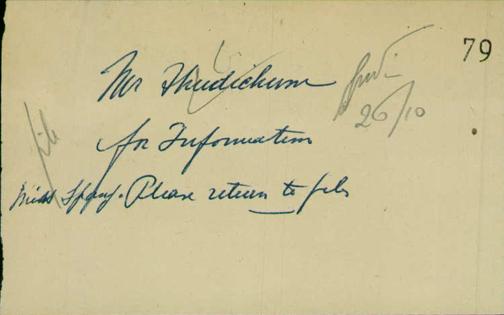 79
Mr Thudichum
for Information
26/10
file
Miss Please return to file